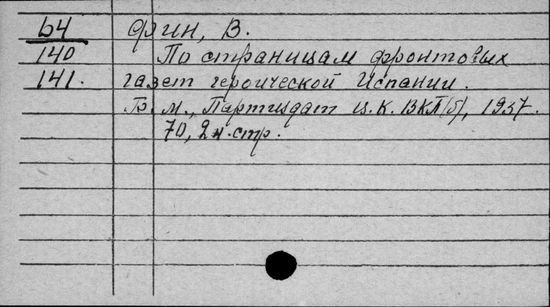 64 Флин, В.
140 По страницам фронтовых
141. газет героической Испании.
Б. м., Партиздат Ц.К. ВКП(б), 1937.
70, 2 н. стр.